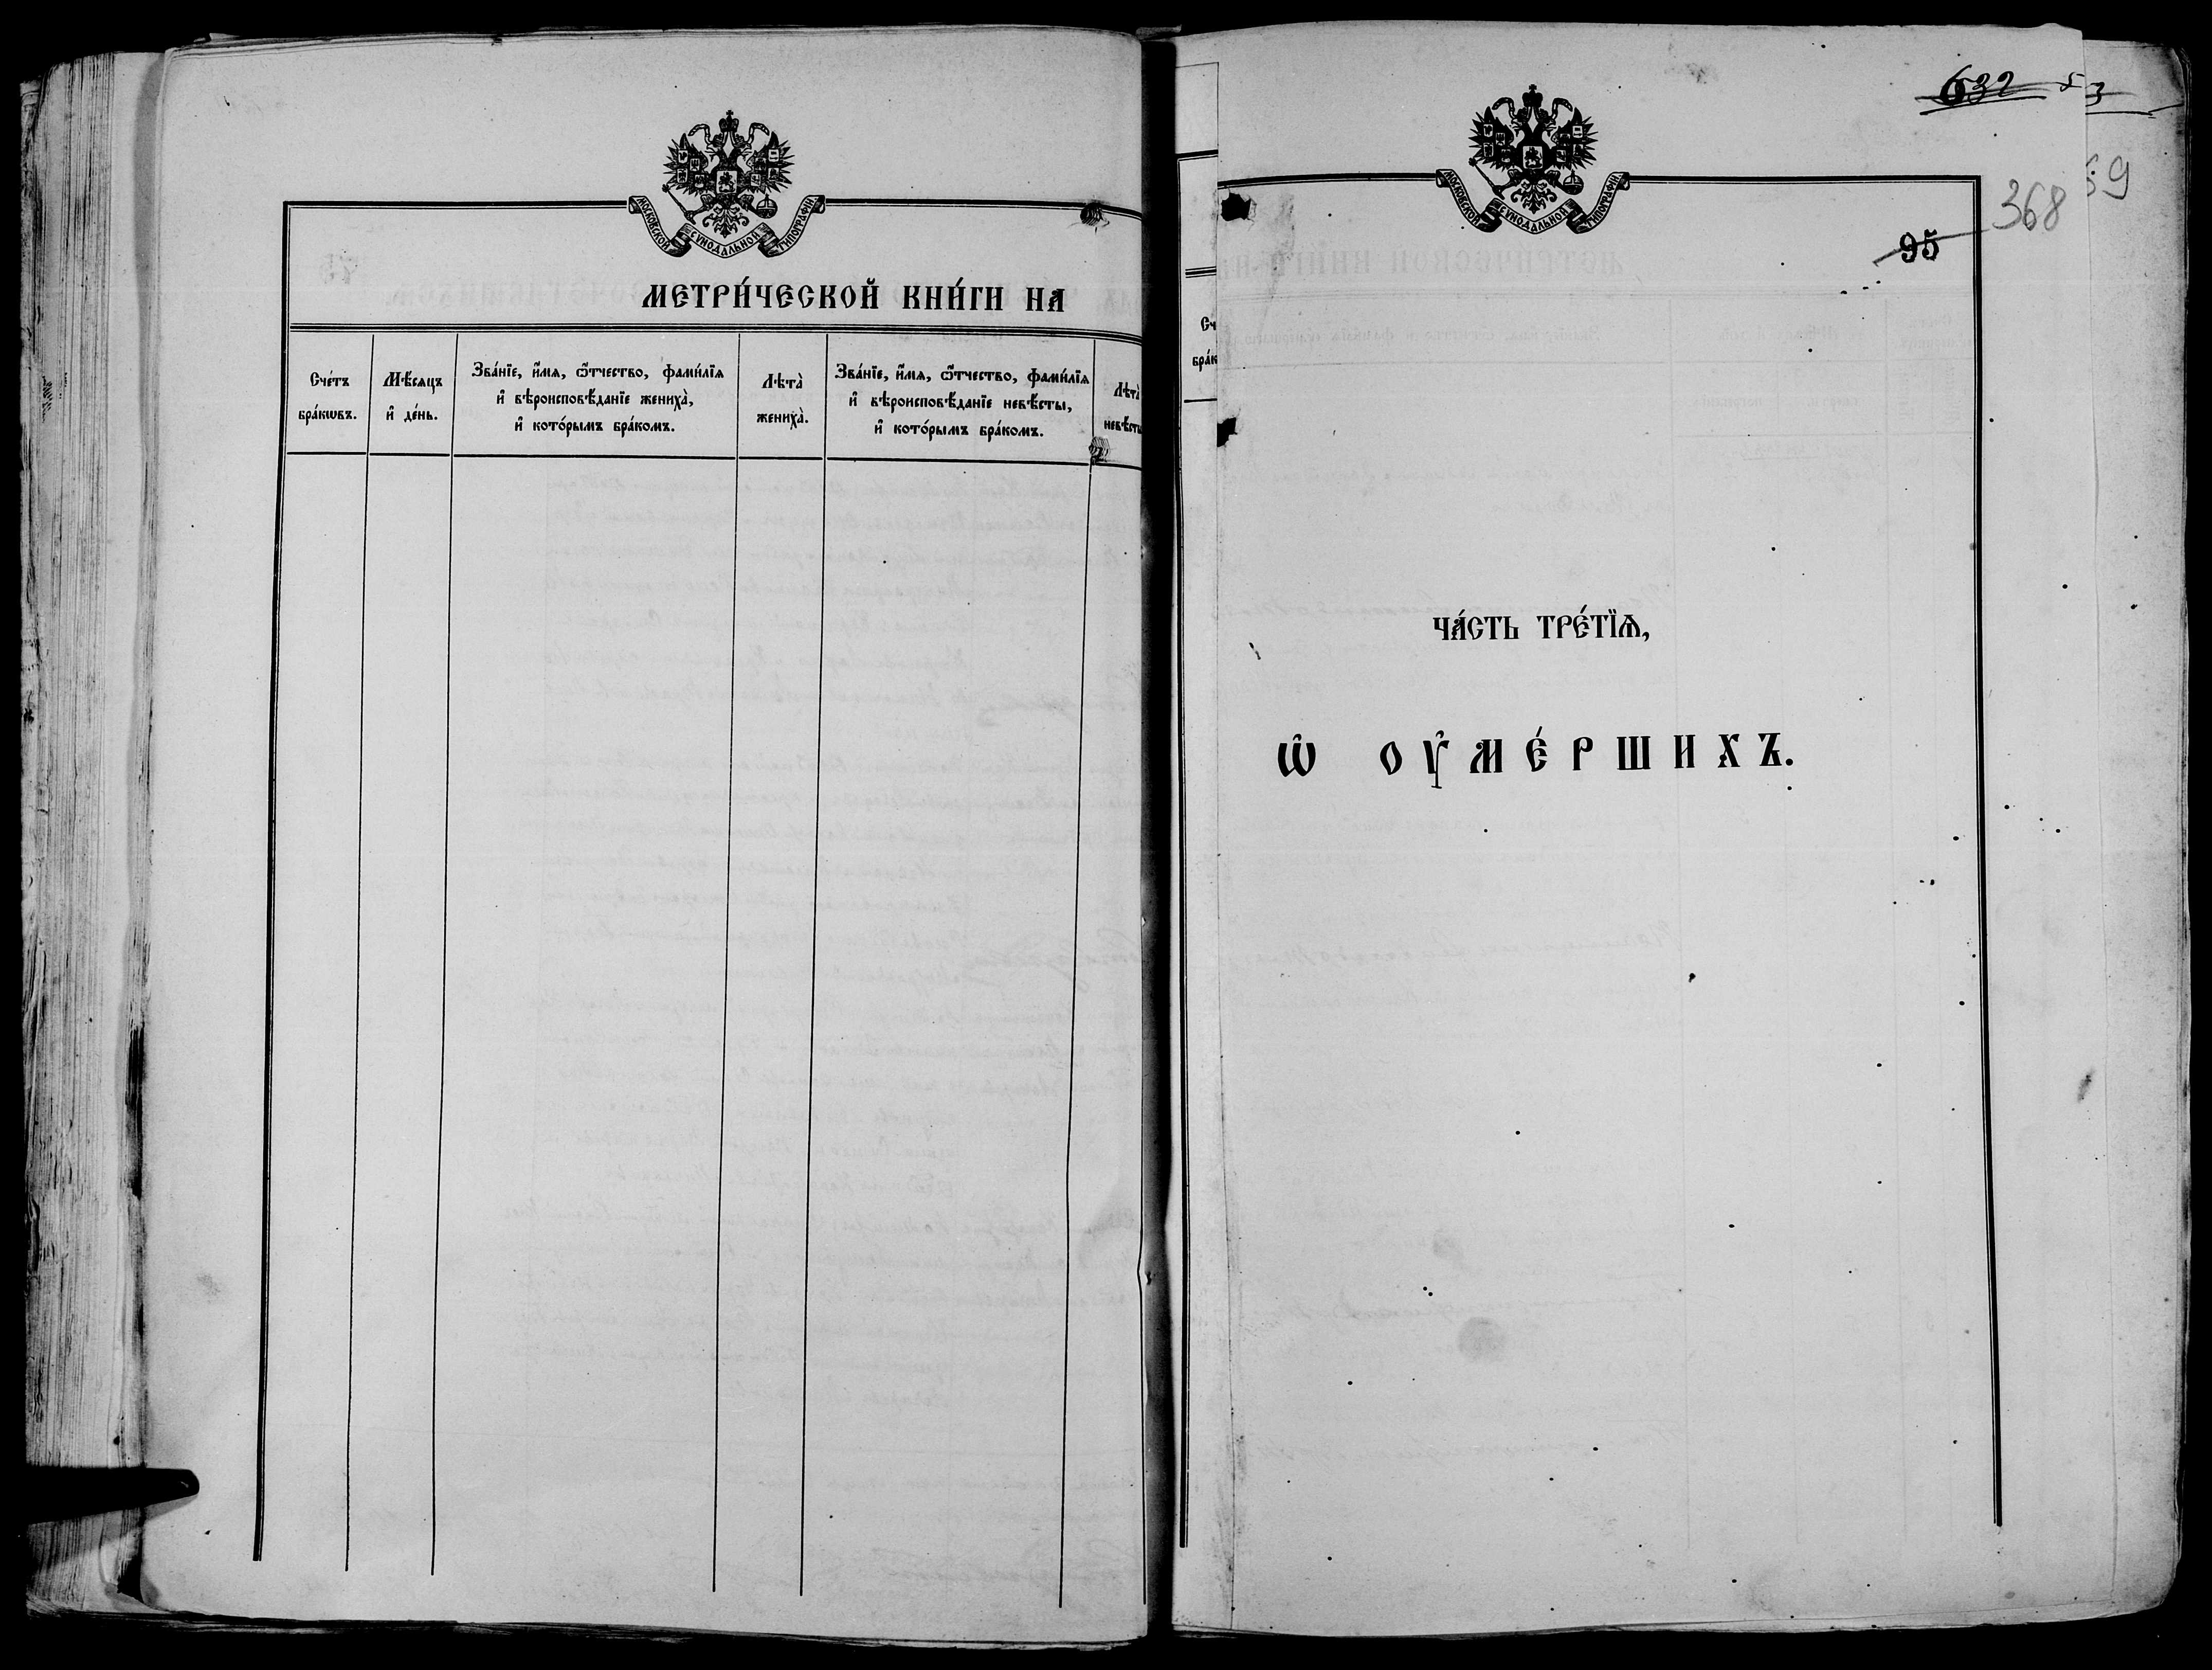 МОСКОВСКОЙ СѴНОДАЛЬНОЙ ТИПОГРАФІИ
МЕТРИ́ЧЕСКОЙ КНИ́ГИ НА
Сче́тъ
бра́кѡвъ.
Мѣ́сяцъ
и҆ де́нь.
Зва́нїе, и҆́мѧ, ѻ҆́тчество, фами́лїѧ
и҆ вѣроисповѣ́данїе жениха̀,
и҆ кото́рымъ бра́комъ.
Лѣта̀
жениха̀.
Зва́нїе, и҆́мѧ, ѻ҆́тчество, фами́лїѧ
и҆ вѣроисповѣ́данїе невѣ́сты,
и҆ кото́рымъ бра́комъ.
Лѣта̀
невѣ́сты
632
3
69
МОСКОВСКОЙ СѴНОДАЛЬНОЙ ТИПОГРАФІИ
368
95
Сч
бра́к
ЧА́СТЬ ТРЕ́ТЇѦ,
Ѡ҆ ОУ҆МЕ́РШИХЪ.